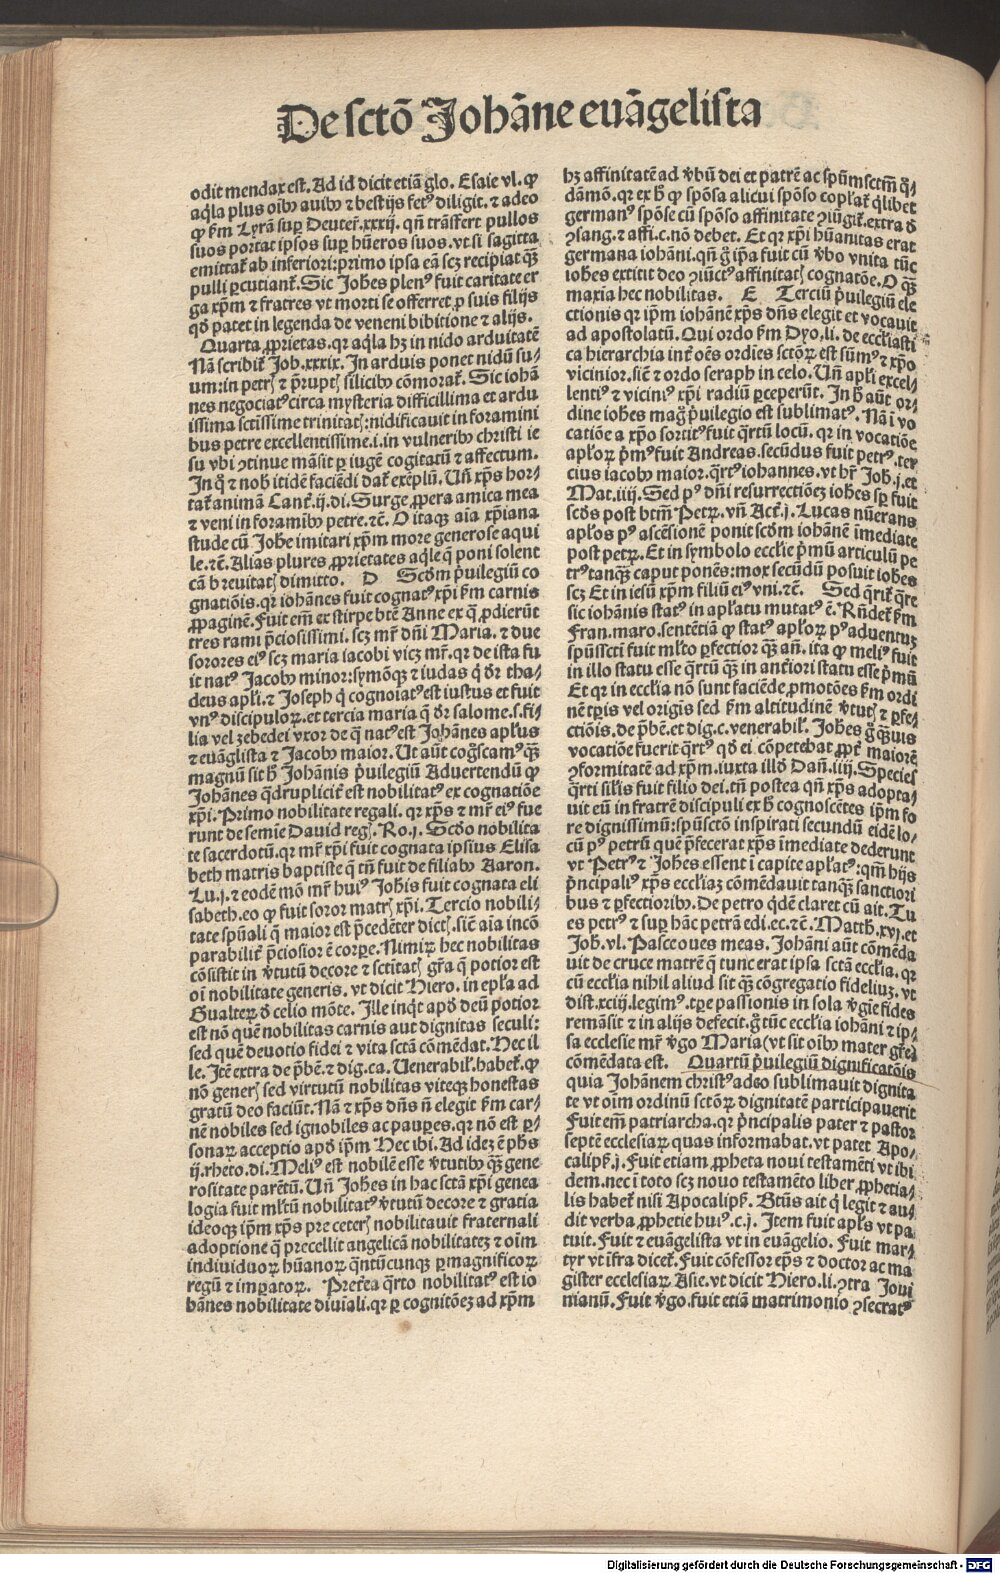 De sctō Johāne euāgelista
odit mendax est. Ad id dicit etiā glo. Esaie vl. ꝙ
aq̄la plus oĩbꝰ auiũ ⁊ bestijs fetꝰ diligit. ⁊ adeo
ꝙ ẜm Lyrā sup̲ Deuter̄. xxxij. qñ trāsfert pullos
suos portat ipsos sup̲ hūeros suos. vt si sagitta
emittat̄ ab inferiori: primo ipsa eā scꝫ recipiat q̄ꝫ
pulli p̲cutiant̄. Sic Johēs plenꝰ fuit caritate er
ga xp̄m ⁊ fratres vt morti se offerret ꝓ suis filijs
qđ patet in legenda de veneni bibitione ⁊ alijs.
Quarta ꝓprietas. qr aq̄la hꝫ in nido arduitatē
Nā scribit̄ Job. xxxix. In arduis ponet nidū su/
um: in petrꝭ ⁊ p̄ruptꝭ silicibꝰ cōmorat̄. Sic iohā
nes negociatꝰ circa mysteria difficillima et ardu
issima sctīssime trinitatꝭ: nidificauit in foramini
bus petre excellentissime. i. in vulneribꝰ christi ie
su vbi ꝯtinue māsit p̲ iugē cogitatū ⁊ affectum.
In q̊ ⁊ nob̄ itidē faciēdi dat̄ exēplū. Uñ xp̄s hor/
tat̄ animā Cant̄. ij. di. Surge ꝓpera amica mea
⁊ veni in foramĩbꝰ petre. ⁊c̄. O itaqꝫ aīa xp̄iana
stude cū Johē imitari xp̄m more generose aqui
le. ⁊c̄. Alias plures ꝓprietates aq̄le q̄ poni solent
cā breuitatꝭ dimitto. D Scđm p̄uilegiū co
gnatiōis. qr iohānes fuit cognatꝰ xp̄i ẜm carnis
ꝓpaginē. Fuit em̄ ex stirpe btē Anne ex q̄ ꝓdierūt
tres rami p̄ciosissimi. scꝫ mr̄ dñi Maria. ⁊ due
sorores eiꝰ scꝫ maria iacobi vicꝫ mr̄. qr de ista fu
it natꝰ Jacobꝰ minor: symōqꝫ ⁊ iudas q̊ đr tha/
deus apl̄i. ⁊ Joseph q̊ cognoīatꝰ est iustus et fuit
vnꝰ discipuloꝝ. et tercia maria q̄ đr salome. s. fi/
lia vel zebedei vxor de q̄ natꝰ est Johānes apl̄us
⁊ euāglista ⁊ Jacobꝰ maior. Ut aūt cog̊scamꝰ q̄ꝫ
magnū sit ħ Johānis p̄uilegiū Aduertendū ꝙ
Johānes q̄druplicit̄ est nobilitatꝰ ex cognatiōe
xp̄i. Primo nobilitate regali. qr xp̄s ⁊ mr̄ eiꝰ fue
runt de semīe Dauid regꝭ. Ro. j. Scđo nobilita
te sacerdotū. qr mr̄ xp̄i fuit cognata ipsius Elisa
beth matris baptiste q̄ tñ fuit de filiabꝰ Aaron.
Lu. j. ⁊ eodē mō mr̄ huiꝰ Johīs fuit cognata eli
sabeth. eo ꝙ fuit soror matrꝭ xp̄i. Tercio nobili/
tate spūali q̄ maior est p̄cedēter dictꝭ. sic̄ aīa incō
parabilit̄ p̄ciosior ē corp̲e. Nimiꝝ hec nobilitas
cōsistit in v̄tutū decore ⁊ sctītatꝭ gr̄a q̄ potior est
oī nobilitate generis. vt dicit Hiero. in epl̄a ad
Gualterꝝ đ celio mōte. Ille inq̇t apđ deū potior
est nō quē nobilitas carnis aut dignitas seculi:
sed quē deuotio fidei ⁊ vita sctā cōmēdat. Hec il
le. Itē extra de p̄bē. ⁊ dig. ca. Uenerabil̄. habet̄. ꝙ
nō generꝭ sed virtutū nobilitas viteqꝫ honestas
gratū deo faciūt. Nā ⁊ xp̄s dñs ñ elegit ẜm car/
nē nobiles sed ignobiles ac paup̲es. qr nō est p̲/
sonaꝝ acceptio apđ ip̄m Hec ibi. Ad ideꝫ ē ph̄s
ij. rheto. di. Meliꝰ est nobilē esse v̄tutibꝰ q̄ꝫ gene
rositate parētū. Uñ Johēs in hac sctā xp̄i genea
logia fuit ml̄tū nobilitatꝰ v̄tutū decore ⁊ gratia
ideoqꝫ ip̄m xp̄s pre ceterꝭ nobilitauit fraternali
adoptione q̄ precellit angelicā nobilitateꝫ ⁊ oīm
indiuiduoꝝ hūanoꝝ q̄ntūcunqꝫ p̲magnificoꝝ
regū ⁊ imp̲atoꝝ. Preterea q̄rto nobilitatꝰ est io
hānes nobilitate diuiali. qr p̲ cognitōeꝫ ad xp̄m
hꝫ affinitatē ad v̄bū dei et patrē ac spūmsctm̄ q̊/
dāmō. qr ex ħ ꝙ spōsa alicui spōso copl̄at̄ q̊libet
germanꝰ spōse cū spōso affinitate ꝯiūgit̄. extra đ
ꝯsang. ⁊ affi. c. nō debet. Et qr xp̄i hūanitas erat
germana iohāni. qñ g̊ ip̄a fuit cū v̄bo vnita tūc
iohēs extitit deo ꝯiūctꝰ affinitatꝭ cognatōe. O q̄ꝫ
maxīa hec nobilitas. E Terciū p̄uilegiū ele
ctionis qr ip̄m iohānē xp̄s dñs elegit et vocauit
ad apostolatū. Qui ordo ẜm Dyo. li. de eccl̄iasti
ca hierarchia int̄ oēs ordīes sctōꝝ est sūmꝰ ⁊ xp̄o
vicinior. sic̄ ⁊ ordo seraph in celo. Uñ apl̄i excel/
lentiꝰ ⁊ viciniꝰ xp̄i radiū p̲ceperūt. In ħ aūt or/
dine iohēs mag̊ p̄uilegio est sublimatꝰ. Nā ī vo
catiōe a xp̄o sortitꝰ fuit q̄rtū locū. qr in vocatiōe
apl̄oꝝ p̄mꝰ fuit Andreas. secūdus fuit petrꝰ. ter
cius iacobꝰ maior. q̄rtꝰ iohannes. vt hr̄ Joh. j. et
Mat. iiij. Sed pꝰ dñi resurrectiōeꝫ iohēs sp̲ fuit
scđs post btm̄ Petꝝ. vñ Act̄. j. Lucas nūerans
apl̄os pꝰ ascēsionē ponit scđm iohānē īmediate
post petꝝ. Et in symbolo eccl̄ie p̄mū articulū pe
trꝰ tanq̄ꝫ caput ponēs: mox secūdū posuit iohēs
scꝫ Et in iesū xp̄m filiū eiꝰ vni. ⁊c̄. Sed q̄rit̄ q̄re
sic iohānis statꝰ in apl̄atu mutatꝰ ē. Rñdet̄ ẜm
Fran. maro. sentētiā ꝙ statꝰ apl̄oꝝ pꝰ aduentuꝫ
spūsscti fuit ml̄to p̲fectior q̄ꝫ añ. ita ꝙ meliꝰ fuit
in illo statu esse q̄rtū q̄ꝫ in ant̄iori statu esse p̄mū
Et qr in eccl̄ia nō sunt faciēde ꝓmotōes ẜm ordi
nē tp̲is vel origīs sed ẜm altitudinē v̄tutꝭ ⁊ p̲fe/
ctiōis. de p̄bē. et dig. c. venerabil̄. Johēs g̊ q̄ꝫuis
vocatiōe fuerit q̄rtꝰ qđ ei cōpetebat ꝓpt̄ maiorē
ꝯformitatē ad xp̄m. iuxta illđ Dañ. iiij. Species
q̄rti sil̄is fuit filio dei. tñ postea qñ xp̄s adopta/
uit eū in fratrē discipuli ex ħ cognoscētes ip̄m fo
re dignissimū: spūsctō inspirati secundū eidē lo/
cū pꝰ petrū quē p̄fecerat xp̄s īmediate dederunt
vt Petrꝰ ⁊ Johēs essent ī capite apl̄atꝰ: qm̄ hijs
p̄ncipaliꝰ xp̄s eccl̄iaꝫ cōmēdauit tanq̄ꝫ sanctiori
bus ⁊ p̲fectioribꝰ. De petro q̊dē claret cū ait. Tu
es petrꝰ ⁊ sup̲ hāc petrā edi. ec. ⁊c̄. Matth. xvj. et
Joh. vl. Pasce oues meas. Johāni aūt cōmēda
uit de cruce matrē q̄ tunc erat ipsa sctā eccl̄ia. qr
cū eccl̄ia nihil aliud sit q̄ꝫ cōgregatio fideliuꝫ. vt
dist. xciij. legimꝰ. tp̲e passionis in sola v̄gīe fides
remāsit ⁊ in alijs defecit. g̊ tūc eccl̄ia iohāni ⁊ ip/
sa ecclesie mr̄ v̄go Maria (vt sit oībꝰ mater gr̄e)
cōmēdata est. Quartū p̄uilegiū dignificatōis
quia Johānem christꝰ adeo sublimauit dignita
te vt oīm ordinū sctōꝝ dignitatē participauerit
Fuit em̄ patriarcha. qr p̄ncipalis pater ⁊ pastor
septē ecclesiaꝝ quas informabat. vt patet Apo/
calips̄. j. Fuit etiam ꝓpheta noui testamēti vt ibi
dem. nec ī toto scꝫ nouo testamēto liber ꝓphetia/
lis habet̄ nisi Apocalips̄. Btūs ait q̊ legit ⁊ au/
dit verba ꝓphetie huiꝰ. c. j. Item fuit apl̄s vt pa
tuit. Fuit ⁊ euāgelista vt in euāgelio. Fuit mar/
tyr vt īfra dicet̄. Fuit cōfessor ep̄s ⁊ doctor ac ma
gister ecclesiaꝝ Asie. vt dicit Hiero. li. ꝯtra Joui
nianū. Fuit v̄go. fuit etiā matrimonio ꝯsecratꝰ
Digitalisierung gefördert durch die Deutsche Forschungsgemeinschaft - DFG